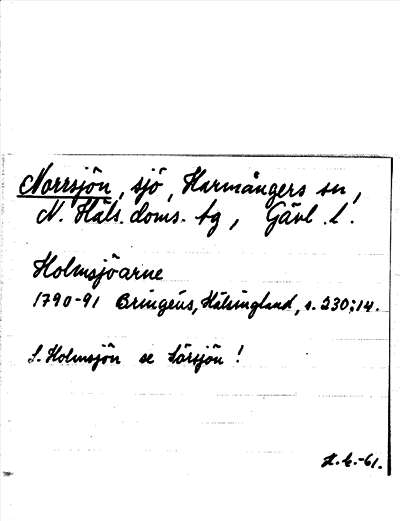 Norrsjön, sjö, Harmångers sn,
N. Häls. doms. tg, Gävl. l.
Holmsjöarne
1790-91 Bringéus, Hälsingland, s. 230:14.
S. Holmsjön se Sörsjön!